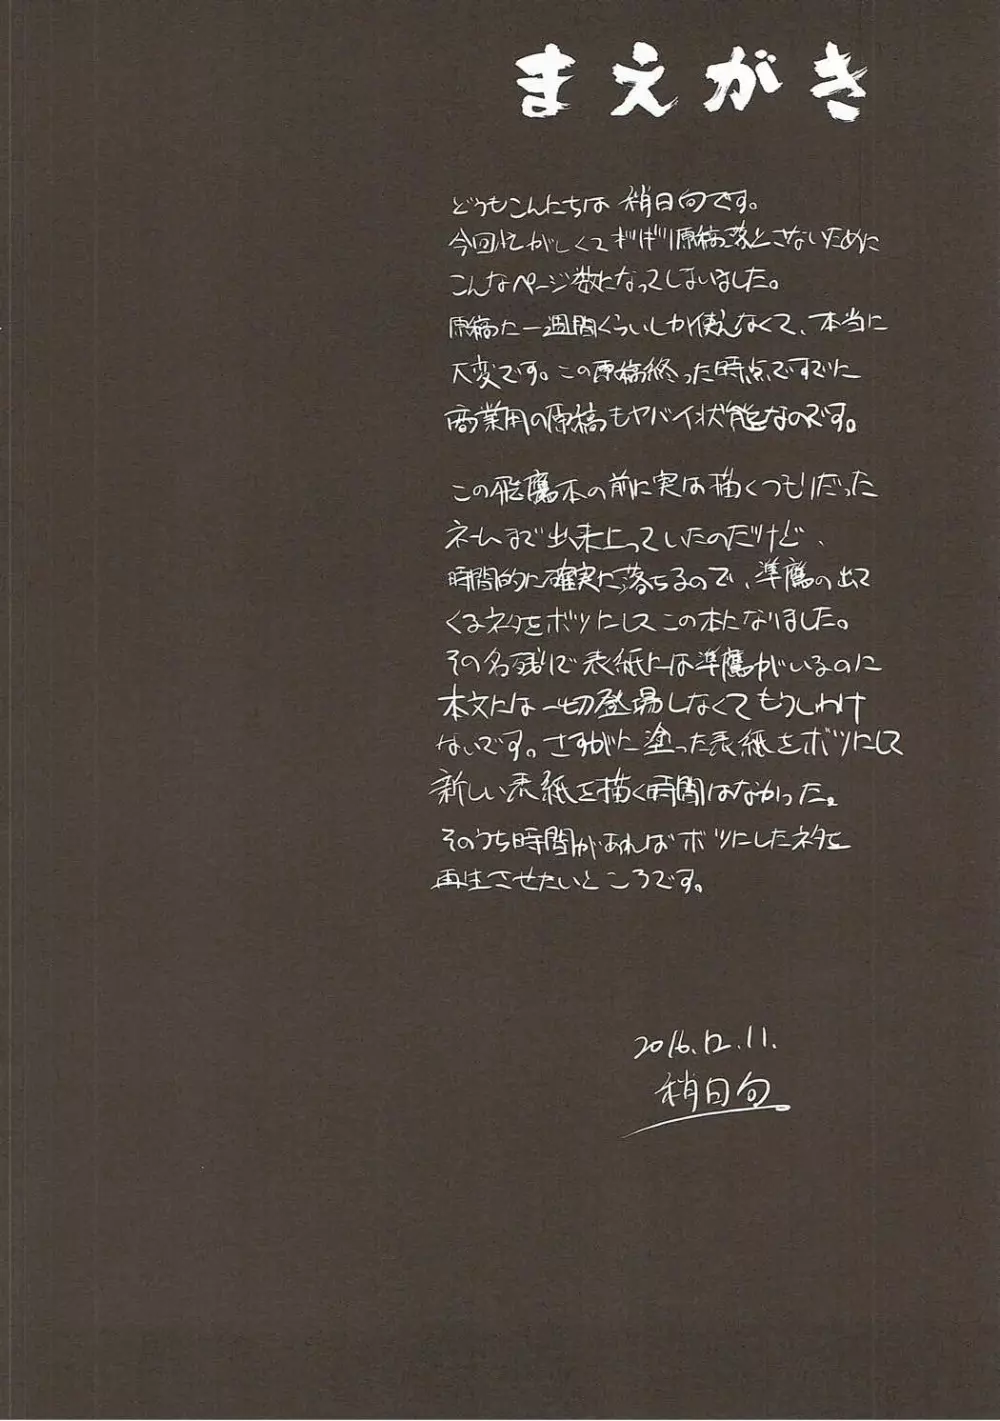 まえがき
どうもこんにちは 梢日向です。
今回忙がしくてギリギリ原稿落とさないために
こんなページ数になってしまいました。
原稿に一週間くらいしか使えなくて、本当に
大変です。この原稿終った時点ですでに
商業用の原稿もヤバイ状態なのです。
この飛鷹本の前に実は描くつもりだった
ネームまで出来上っていたのだけど、
時間的に確実に落ちるので、準鷹の出て
くるネタをボツにしてこの本になりました。
その名残りで表紙には準鷹がいるのに
本文には一切登場しなくてもうしわけ
ないです。さすがに塗った表紙をボツにして
新しい表紙を描く時間はなかった。
そのうち時間があればボツにしたネタを
再生させたいところです。
2016.12.11.
梢日向